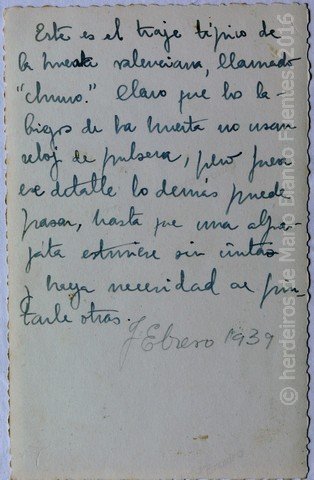 Este es el traje típico de
la huerta valenciana, llamado
"churro." Claro que ho la-
bigos de ha huerta no usan
reloj de pulsera, pero fuera
ese detalle lo demás puede
pasar, hasta que una alpar-
gata estuviere sin cintas
y haya necesidad de pin-
tarle otras.
FEbrero 1939
© herdeiros de Mario Blanco Fuentes, 2016